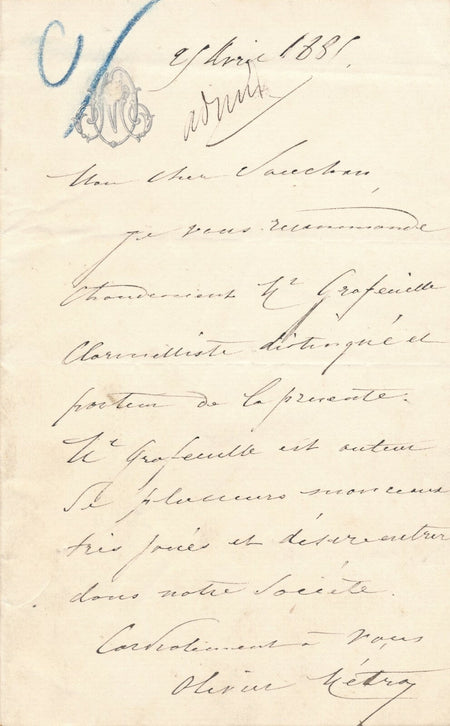 25 Avril 1881.
admis
Mon cher Souchon,
je vous recommande
chaudement Mr Grafeuille
Clarinettiste distingué et
porteur de la présente.
Mr Grafeuille est auteur
de plusieurs morceaux
très joués et désire entrer
dans notre Société.
Cordialement à vous
Olivier Métra